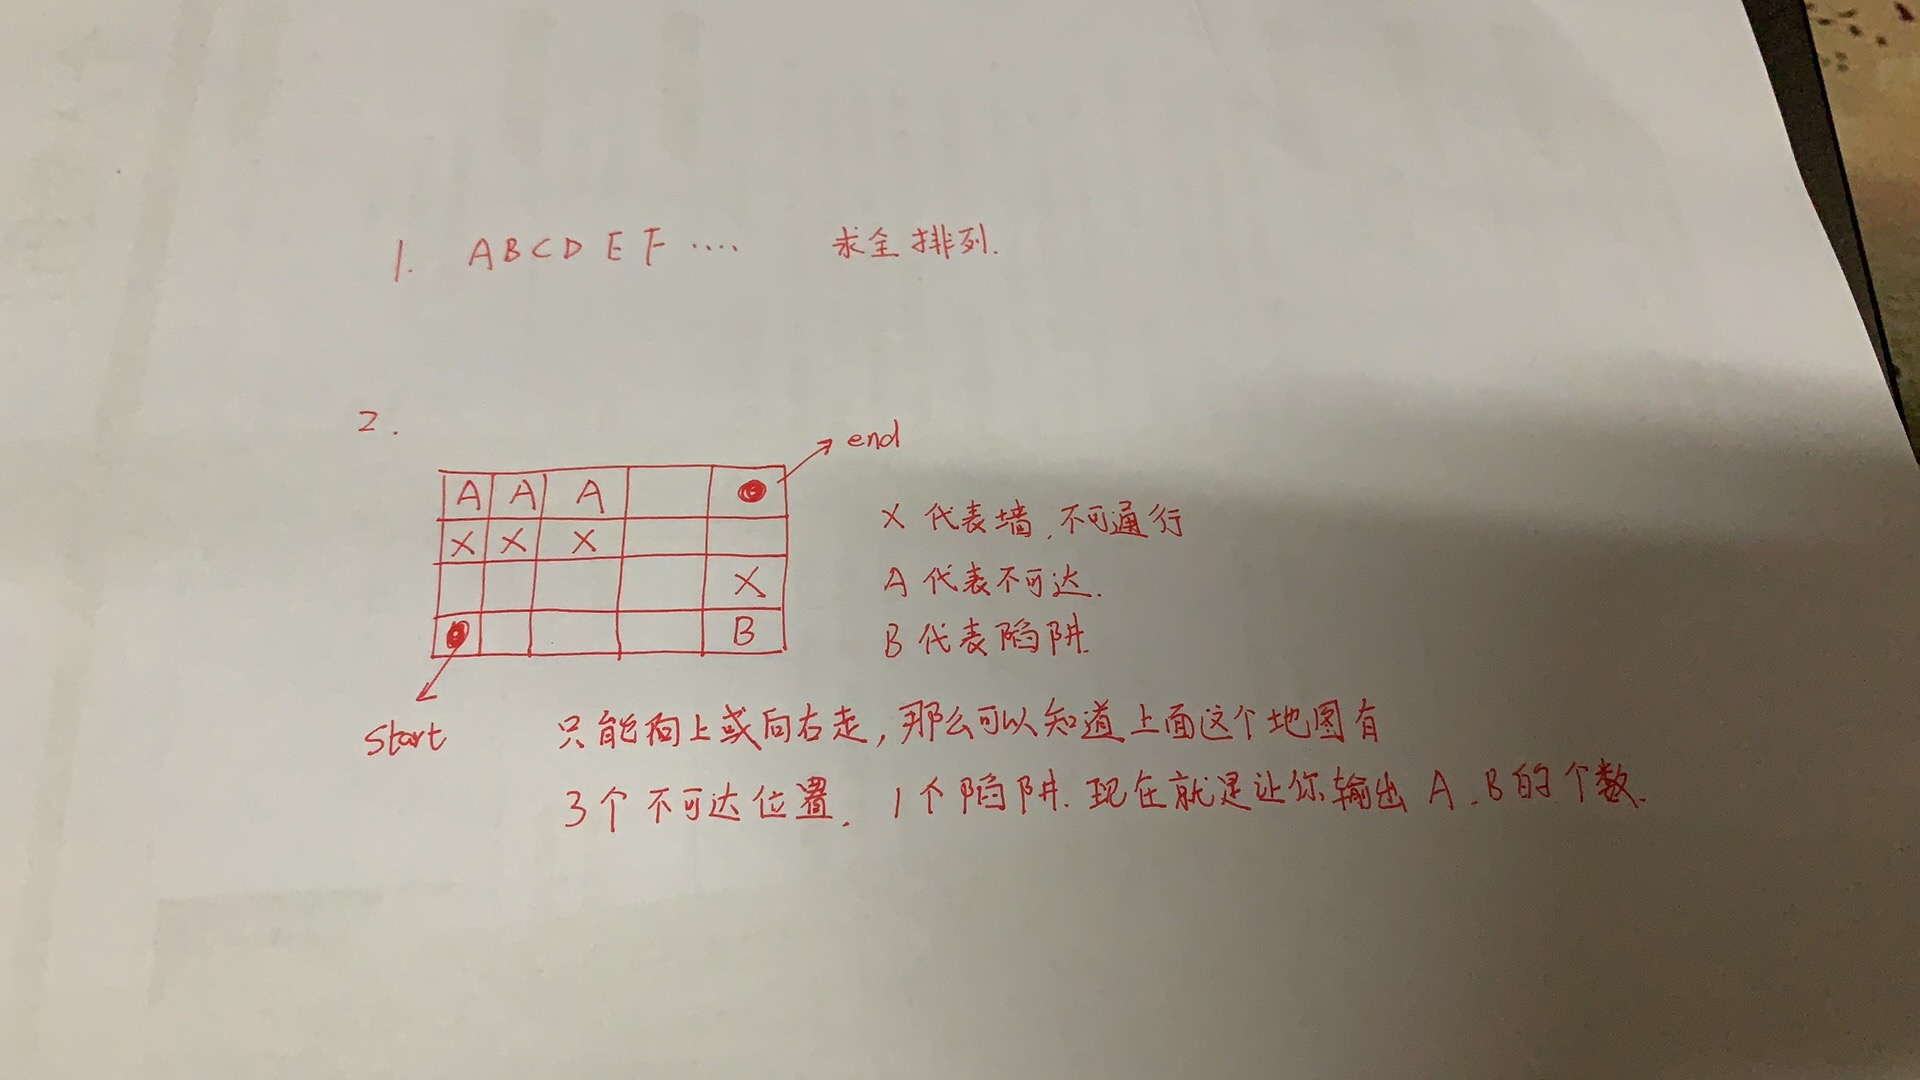 1. A B C D E F ···· 求全排列.
2.
end
A A A
X X X
X
B
start
X 代表墙,不可通行
A 代表不可达.
B 代表陷阱
只能向上或向右走,那么可以知道上面这个地图有
3个不可达位置. 1个陷阱.现在就是让你输出 A、B的个数.